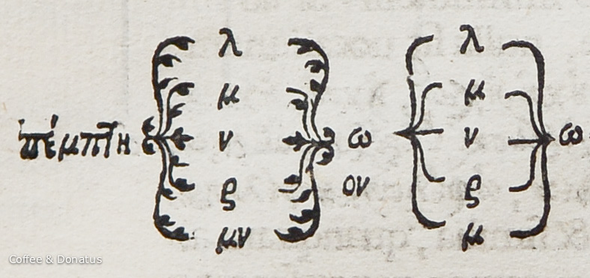 λ λ
μ μ
πέμπτη ν ω ν ω
ρ ου ρ
μν μ
Coffee & Donatus